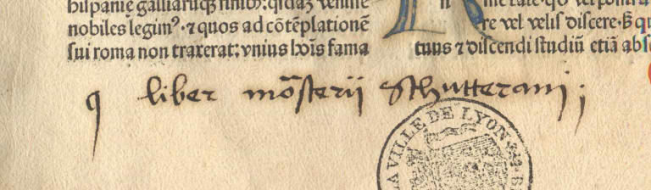 hiſpanie galliarūqȝ finibꝰ: quſdā veniſſe
nobiles legimꝰ · ⁊ quos ad cōtēplationē
ſui roma non traxerat: vnius hoīs fama
re vel velis diſcere · Sȝ qu
tuus ⁊ diſcendi ſtudiū etiā abſ
q liber mōſterij Schutterani ;
LA VILLE DE LYON